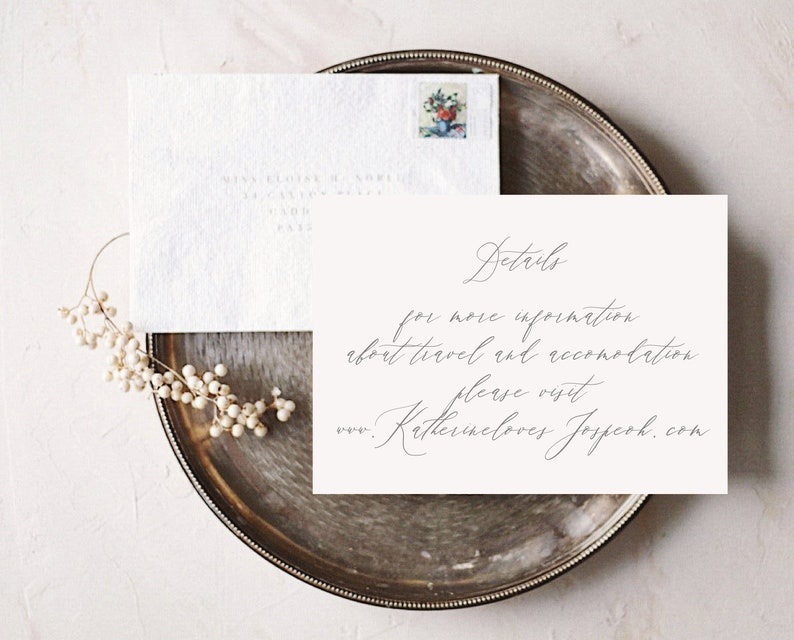 MISS ELOISE H. NOBLE
Details
for more information
about travel and accomodation
please visit
www.Katherineloves Jospeoh.com